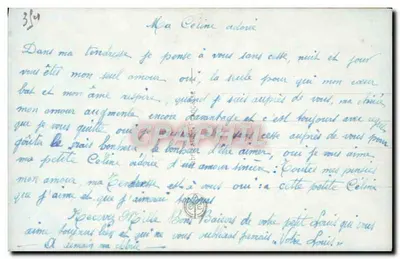 35 29
Ma Céline adorée
Dans ma tendresse je pense à vous sans cesse, nuit et jour
vous êtes mon seul amour oui la seule pour qui mon cœur
bat et mon âme respire, quand je suis auprès de vous, ma chérie
mon amour augmente encore davantage et c'est toujours avec
que je vous quitte oui je sans cesse auprès de vous pour
goûter le vrai bonheur le bonheur d'être aimé oui je vous aime,
ma petite Céline adorée d'un amour sincère; Toutes mes pensées
mon amour, ma Tendresse est à vous oui à cette petite Céline
que j'aime et que j'aimerai toujours
Recevez Mille Bons Baisers de votre petit Louis qui vous
aime toujours et qui ne vous oubliera jamais "Votre Louis"
A demain ma chérie